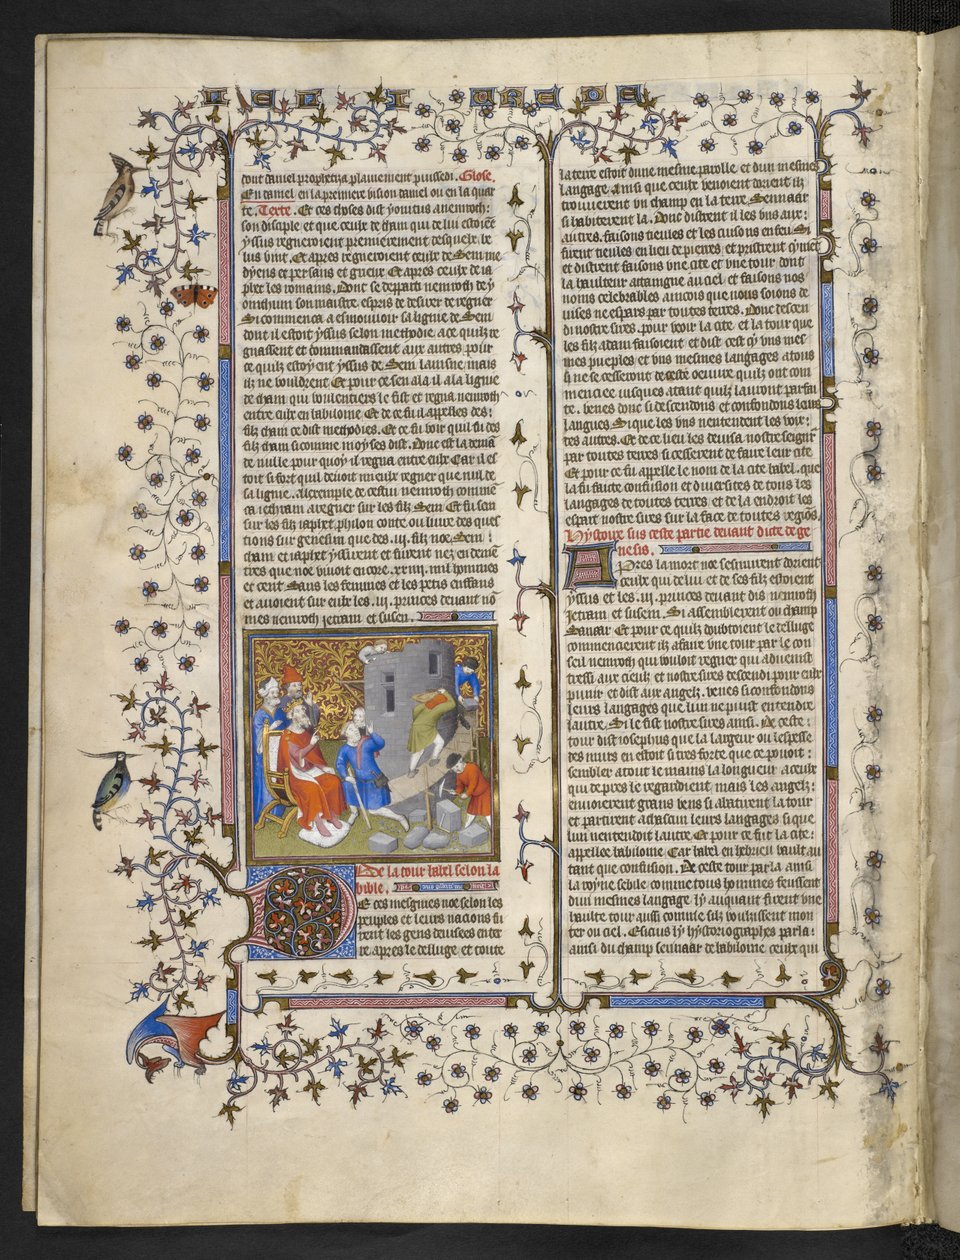 dont daniel prophetiza plainement puissedi. Glose.
En daniel. en la premiere vision daniel ou en la quar
te. Texte. Et ces choses dist yonitus a nemroth:
son disciple et que ceulx de cham qui de lui estoiẽt
yssus regneroient premierement desquelx be
lus vint. Et apres regneroient ceulx de Sem me
dyens et persans et grieux Et apres ceulx de ia
phet les romains. Donc se departi nemroth de y
onithum son maistre. espris de desirer de regner
Si commenca a esmouvoir sa ligne de Sem
dont il estoit yssus selon methodie. a ce quilz re
gnassent et commandassent aux autres pour
ce quilz estoyent yssus de Sem lainsne. mais
ilz ne vouldrent Et pour ce sen ala il a la ligne
de cham qui voulentiers le fist et regna nemroth
entre eulx en babiloine Et de ce fu il appelles des:
filz cham ce dist methodies. Et ce fu voir quil fu des
filz cham si comme moyses dist. Donc est la demã
de nulle pour quoy il regna entre eulx Car il es
toit si fort quil devoit miculx regner que nul de
sa ligne. A lexemple de cestui nemroth commẽ
ca iectram a regner sur les filz Sem Et su sen
sur les filz iaphet. philon conte ou livre des ques
tions sur genesim que des .iii. filz noe. Sem:
cham et iaphet yssirent et furent nez en demẽ
tres que noe vivoit encore .xxiiij. mil hommes
et cent Sans les femmes et les petis enffans
et avoient sur eulx les .iii. princes devant nõ
mes nemroth iectram et susen.
De la tour babel selon la
bible.
De ces mesgnies noe selon les
peuples et leurs nacions fu
rent les gens devisees enter
re apres le deluge. et toute
la terre estoit dune mesme parolle. et dun mesmes
langage. Ainsi que ceulx venoient dorient ilz
trouverent un champ en la terre Sennaar
si habiterent la. Donc distrent il les uns aux:
autres. faisons tieules et les cuisons en feu Si
firent tieules en lieu de pierres. et pristrent cymẽt
et distrent faisons une cite et une tour dont
la haulteur attaingne au ciel. et faisons nos
noms celebrables aincois que nous soions de
vises ne espars par toutes terres. Donc descen
di nostre sires. pour veoir la cite et la tour que
les filz adam faisoient et dist cest cy uns mes
mes pueples et uns mesmes langages a tous
si ne se cesseront de ceste oeuvre quilz ont com
menciee iusques atant quilz lauront parfai
te. venes donc si descendons et confondons leurs
langues. Si que les uns nentendent les voix:
des autres. Et de ce lieu les devisa nostre seignr
par toutes terres si cesserent de faire leur cite
Et pour ce fu appelle le nom de la cite babel. que
la fu faicte confusion et diversites de tous les
langages de toutes terres et de la endroit les
espart nostre sires sur la face de toutes regiõs.
Hystoire sus ceste partie devant dicte de ge
nesis.
Apres la mort noe sesmurent dorient
ceulx qui de lui et de ses filz estoient
yssus et les .iii. princes devant dis nemroth
Jectram et susem. Si assemblerent ou champ
Sanaar Et pour ce quilz doubtoient le deluge
commencerent ilz a faire une tour par le con
seil nemroth qui vouloit regner qui advenist
tressi aux cieulx et nostre sires descendi pour eulx
punir et dist aux angelz. venes si confondons
leurs langages que lun ne puist entendre
lautre. Si le fist nostre sires ainsi. De ceste:
tour dist iosephus que la largeur ou lespesse
des murs en estoit si tres forte que ce pooit:
sembler a tout le mains la longueur a ceulx
qui de pres le regardoient. mais les angelz:
envoierent grans vens si abatirent la tour
et partirent a chascun leurs langages si que
lun nentendoit lautre. Et pour ce fut la cite:
appellee babiloine Car babel en hebrieu vault au
tant que confusion. De ceste tour parla ainsi
la royne sebile comme tous hommes feussent
dun mesmes langage. ly auquant firent une
haulte tour aussi comme silz voulsissent mon
ter ou ciel. Esicius ly hystoriographes parla:
ainsi du champ sennaar de babiloine ceulx qui